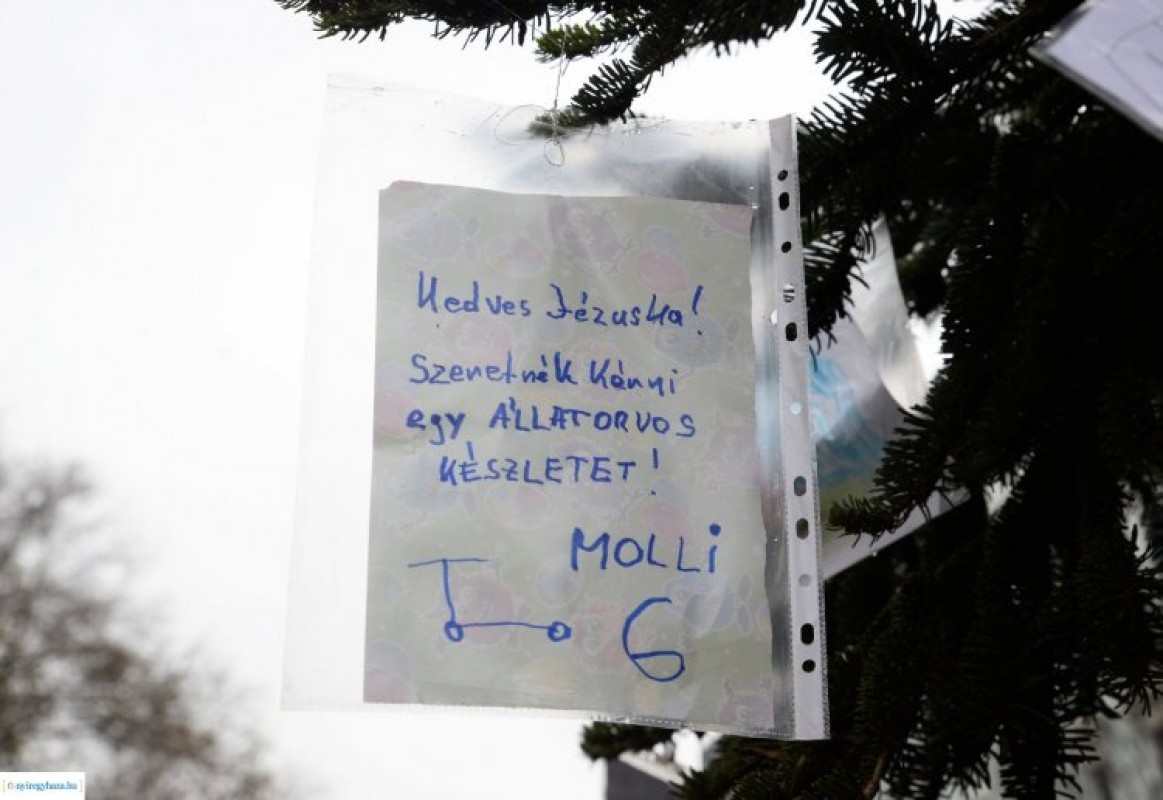 Kedves Jézuska!
Szeretnék kérni
egy ÁLLATORVOS
KÉSZLETET!
MOLLi
6
© nyiregyhaza.hu